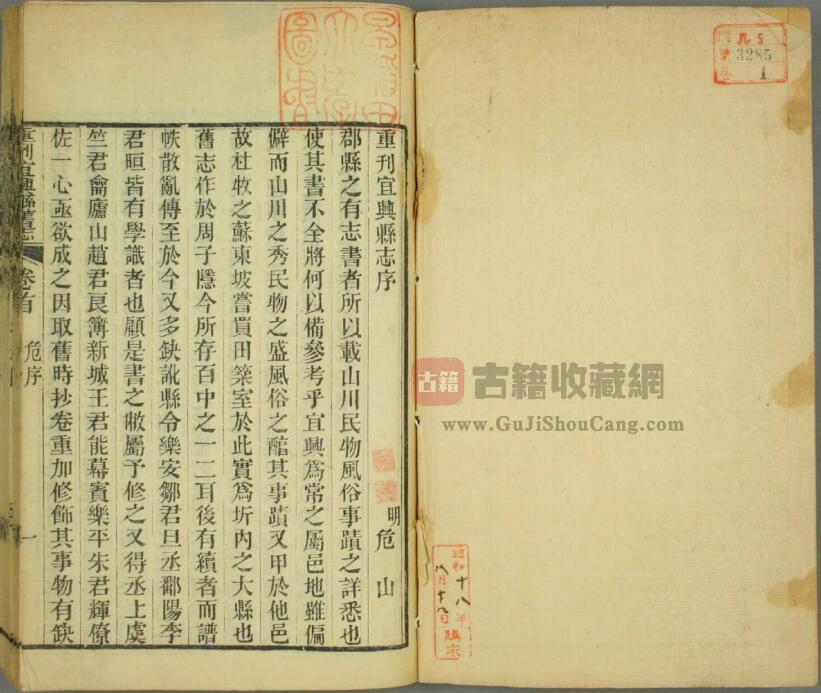 重刊宜興縣志序
明 危山
郡縣之有志書者所以載山川民物風俗事蹟之詳悉也
使其書不全將何以備參考乎宜興爲常之屬邑地雖偏
僻而山川之秀民物之盛風俗之醇其事蹟又甲於他邑
故杜牧之蘇東坡嘗買田築室於此實爲圻內之大縣也
舊志作於周子隱今所存百中之一二耳後有續者而譜
帙散亂傳至於今又多缺訛縣令樂安鄒君旦丞鄱陽李
君晅皆有學識者也顧是書之敝屬予修之又得丞上虞
竺君龠廬山趙君良簿新城王君能幕賓樂平朱君輝僚
佐一心亟欲成之因取舊時抄卷重加修飾其事物有缺
重刊宜興縣舊志 卷首 危序 一
早稻田
大學
圖書
几5
3285
1
古籍 古籍收藏網
www.GuJiShouCang.com
昭和十八年
八月十八日購求